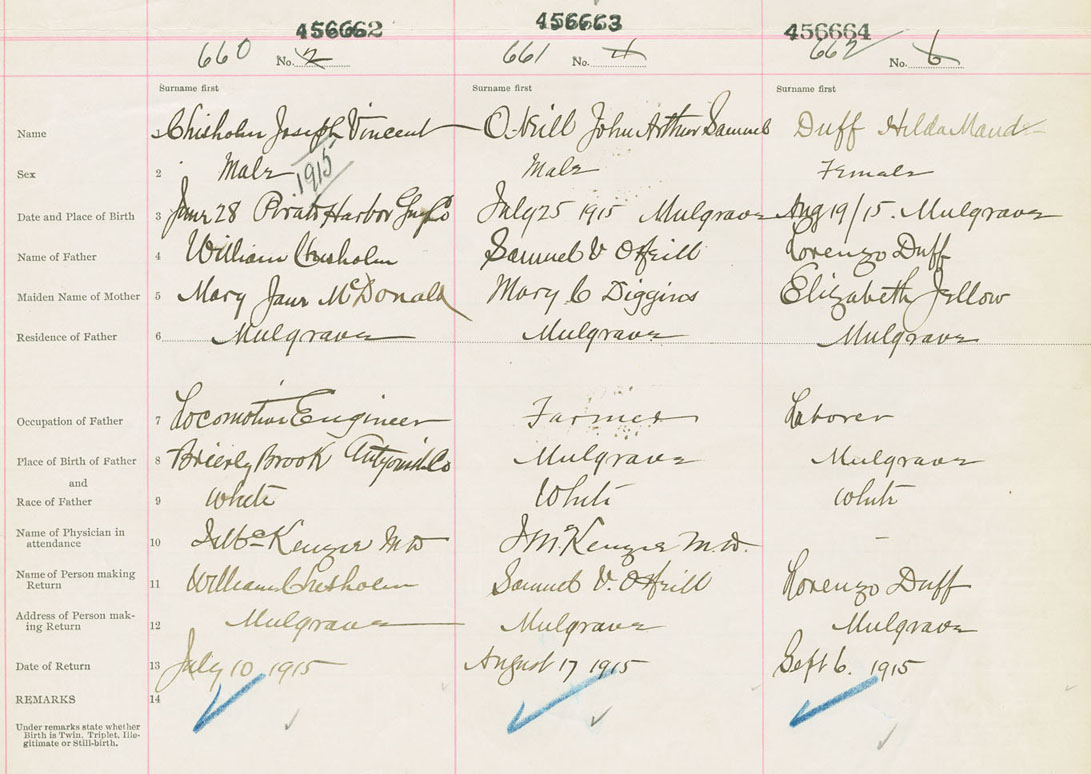 456662 456663 456664
660 No. 2 661 No. 4 662 No. 6
Surname first Surname first Surname first
Name Chisholm Joseph Vincent O.Neill John Arthur Samuel Duff Hilda Maud
1915
Sex 2 Male Male Female
Date and Place of Birth 3 June 28 Pirate Harbor Guy Co July 25 1915 Mulgrave Aug 19/15. Mulgrave
Name of Father 4 William Chisholm Samuel V O'Neill Lorenzo Duff
Maiden Name of Mother 5 Mary Jane McDonald Mary C Diggins Elizabeth Jellow
Residence of Father 6 Mulgrave Mulgrave Mulgrave
Occupation of Father 7 Locomotive Engineer Farmer Laborer
Place of Birth of Father 8 Brierly Brook Antigonish Co Mulgrave Mulgrave
and
Race of Father 9 White White White
Name of Physician in
attendance 10 McKenzie M D McKenzie M.D. -
Name of Person making
Return 11 William Chisholm Samuel V. O'Neill Lorenzo Duff
Address of Person mak-
ing Return 12 Mulgrave Mulgrave Mulgrave
Date of Return 13 July 10 1915 August 17 1915 Sept 6. 1915
REMARKS 14
Under remarks state whether
Birth is Twin, Triplet, Ille-
gitimate or Still-birth.